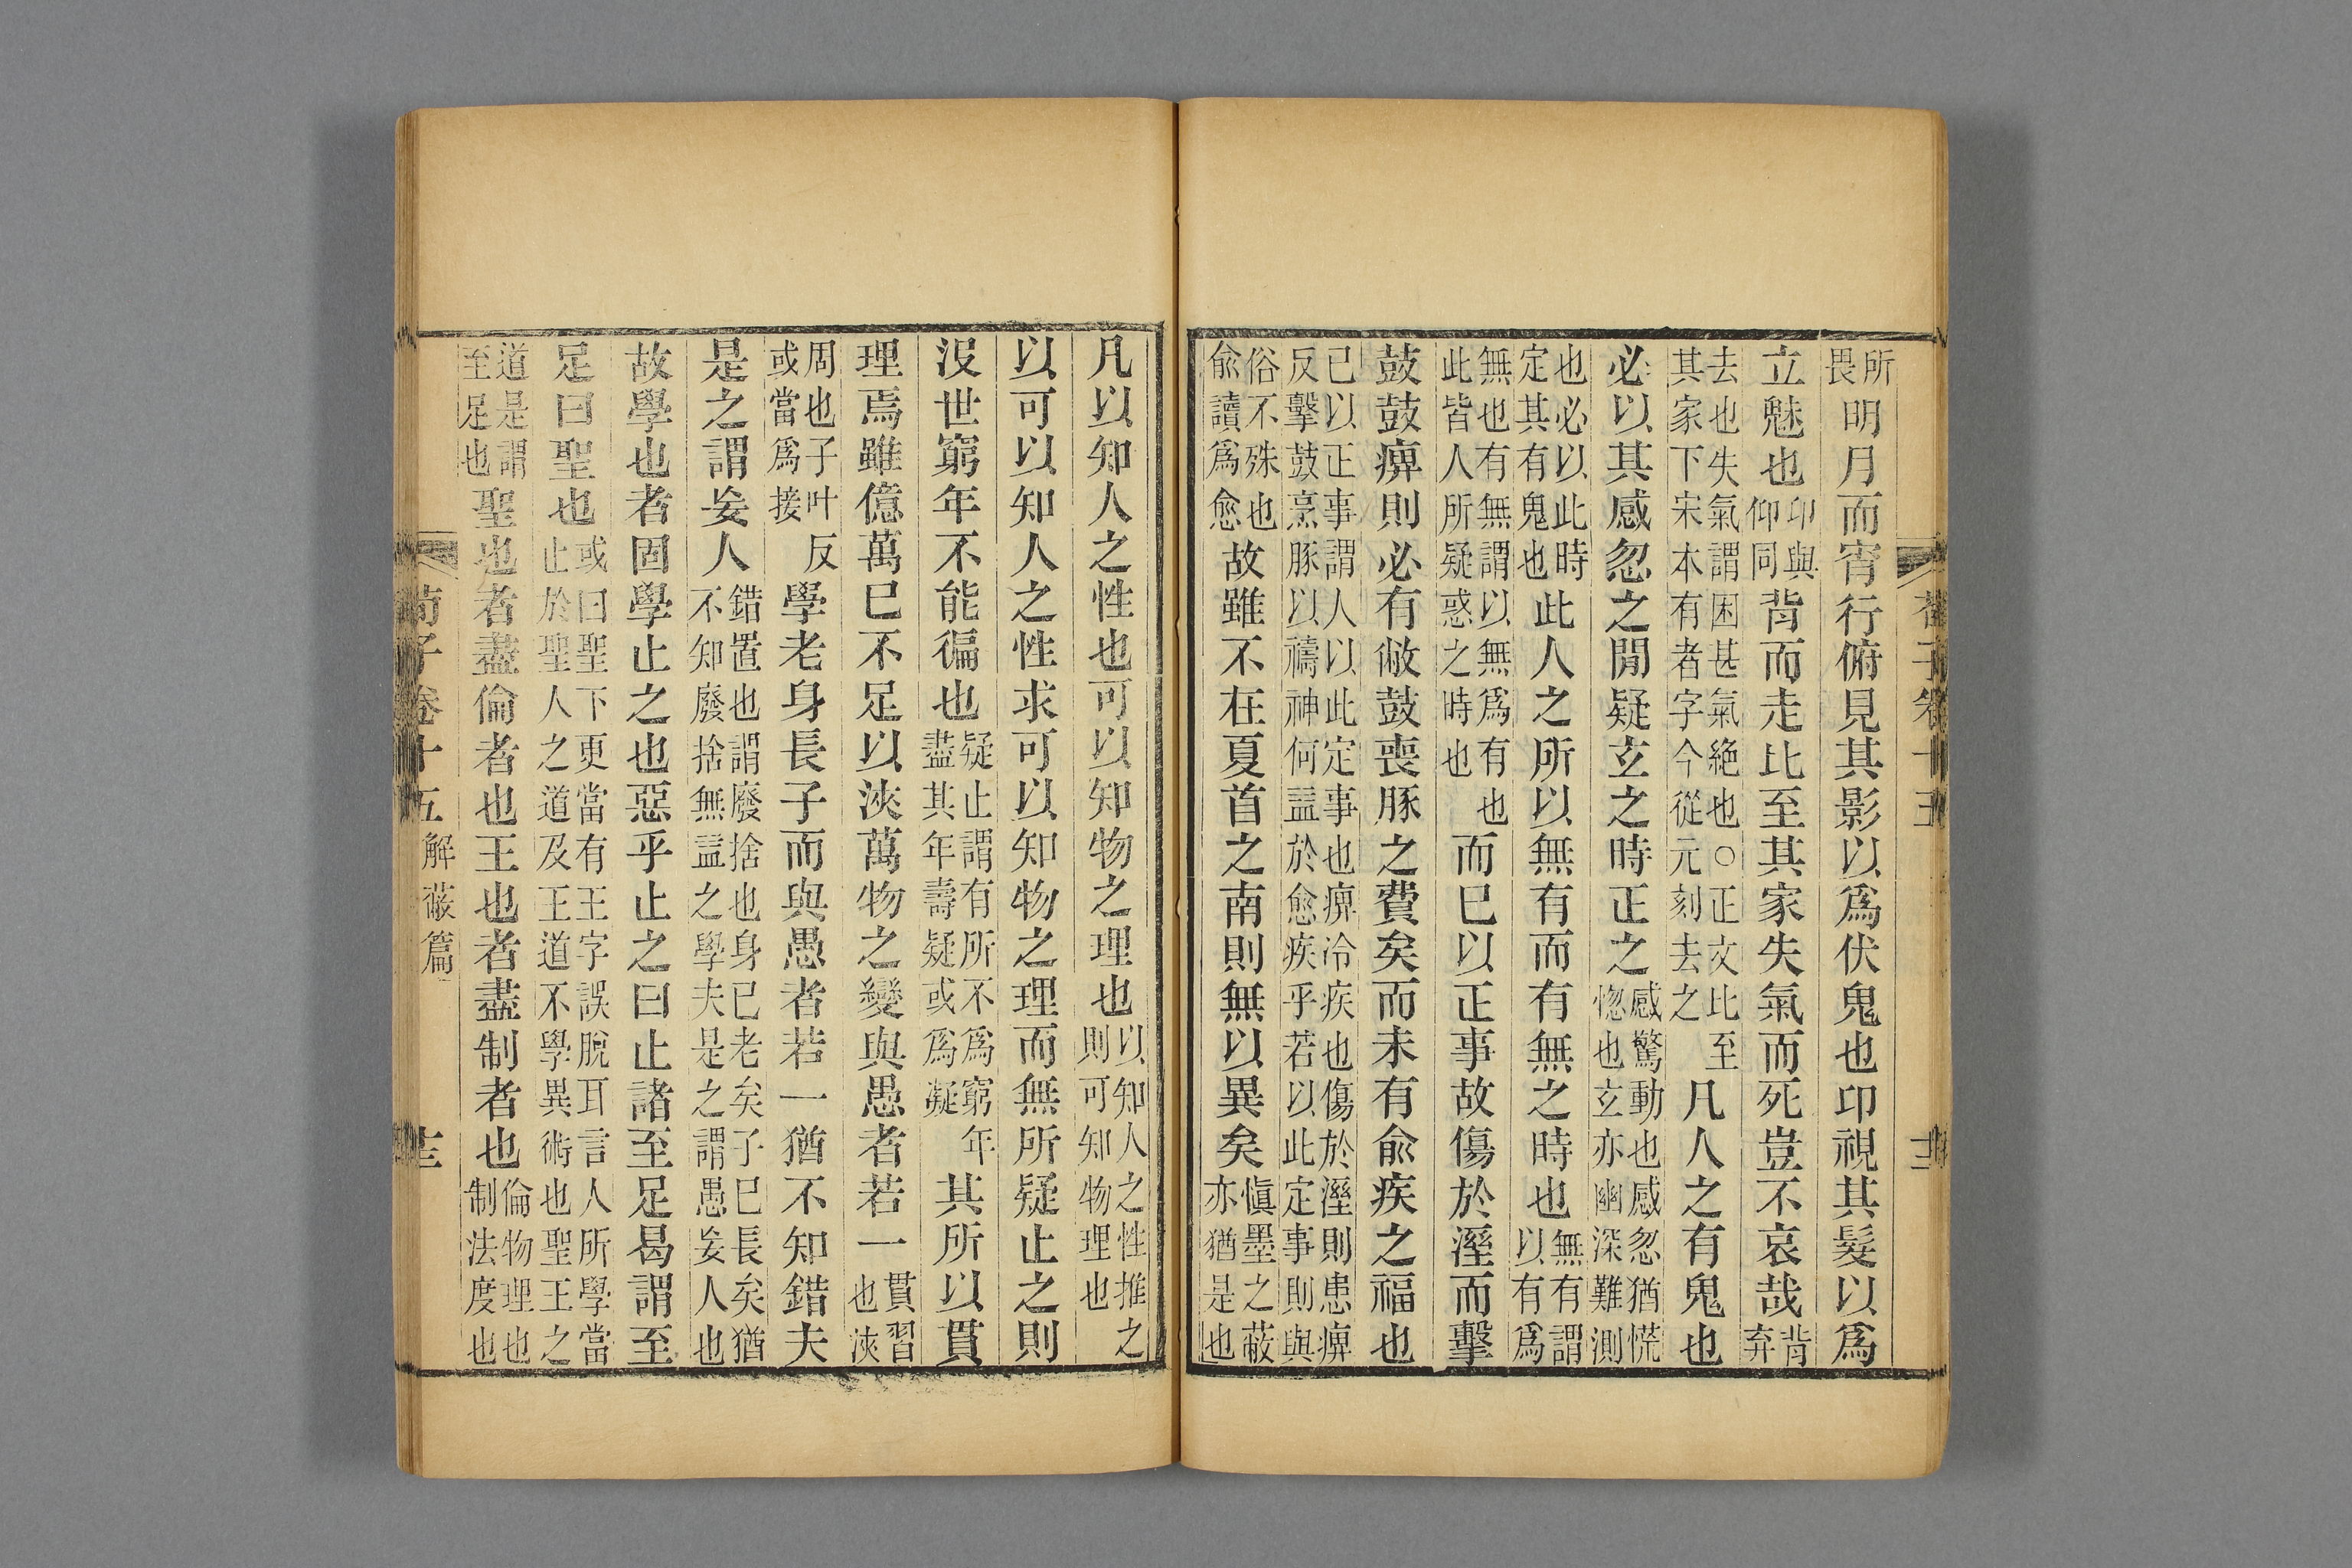 荀子卷十五
所畏明月而宵行俯見其影以爲伏鬼也卬視其髮以爲
立魅也卬與仰同背而走比至其家失氣而死豈不哀哉背弃
去也失氣謂困甚氣絶也○正文比至其家下宋本有者字今從元刻去之凡人之有鬼也
必以其感忽之閒疑玄之時正之感驚動也感忽猶慌惚也玄亦幽深難測
也必以此時定其有鬼也此人之所以無有而有無之時也無有謂以有爲
無也有無謂以無爲有也此皆人所疑惑之時也而已以正事故傷於溼而擊
鼓鼓痹則必有敝鼓喪豚之費矣而未有俞疾之福也
已以正事謂人以此定事也痹冷疾也傷於溼則患痹反擊鼓烹豚以禱神何益於愈疾乎若以此定事則與
俗不殊也俞讀爲愈故雖不在夏首之南則無以異矣愼墨之蔽亦猶是也
凡以知人之性也可以知物之理也以知人之性推之則可知物理也
以可以知人之性求可以知物之理而無所疑止之則
沒世窮年不能徧也疑止謂有所不爲窮年盡其年壽疑或爲凝其所以貫
理焉雖億萬已不足以浹萬物之變與愚者若一貫習也浹
周也子叶反或當爲接學老身長子而與愚者若一猶不知錯夫
是之謂妄人錯置也謂廢捨也身已老矣子已長矣猶不知廢捨無益之學夫是之謂愚妄人也
故學也者固學止之也惡乎止之曰止諸至足曷謂至
足曰聖也或曰聖下更當有王字誤脫耳言人所學當止於聖人之道及王道不學異術也聖王之
道是謂至足也聖也者盡倫者也王也者盡制者也倫物理也制法度也
荀子卷十五解蔽篇　十三